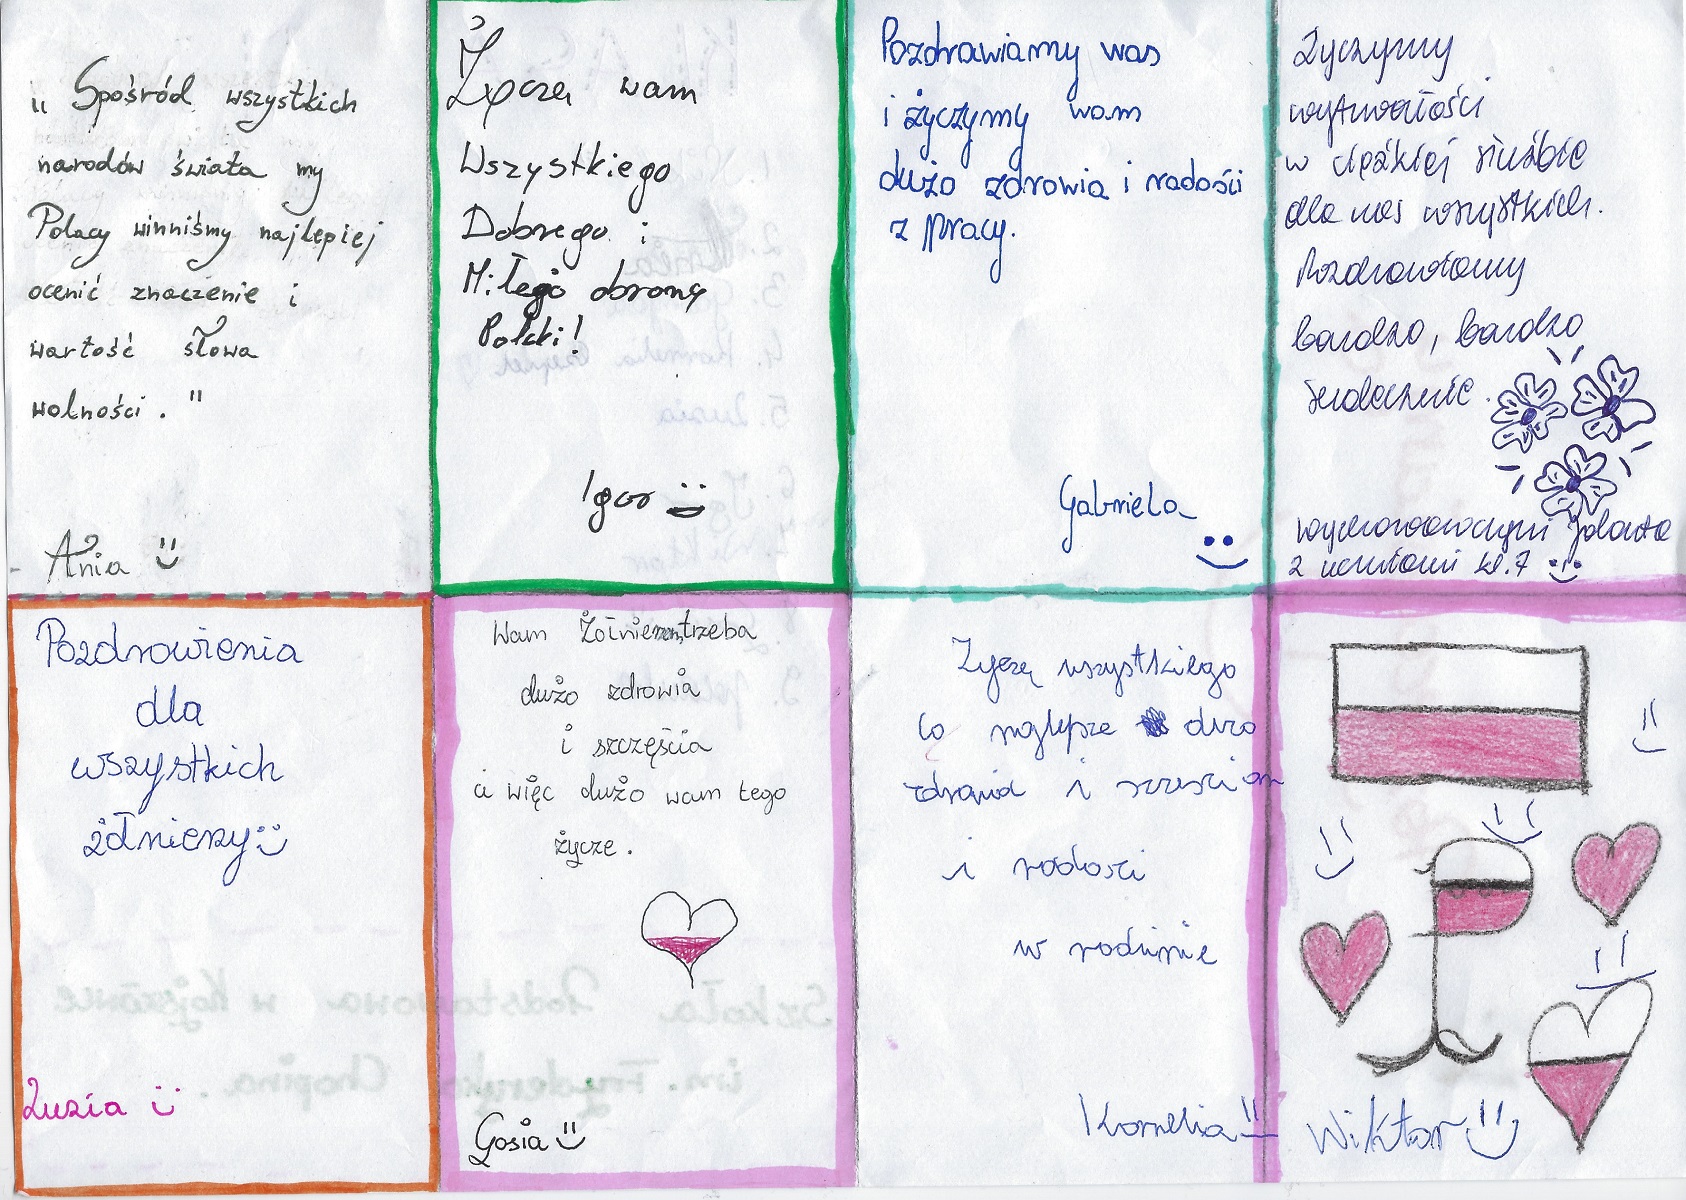 „ Spośród wszystkich
narodów świata my
Polacy winniśmy najlepiej
ocenić znaczenie i
wartość słowa
wolności . "
Ania
Życzę wam
Wszystkiego
Dobrego i
Miłego obroną
Polski!
Igor
Pozdrawiamy was
i życzymy wam
dużo zdrowia i radości
z pracy.
Gabriela
Życzymy
wytrwałości
w ciężkiej służbie
dla nas wszystkich.
Pozdrawiamy
bardzo, bardzo
serdecznie.
wychowawczyni Jolanta
z uczniami kl. 7
Pozdrowienia
dla
wszystkich
żółnieży
Zuzia
Wam trzeba
dużo zdrowia
i szczęścia
a więc dużo wam tego
życze .
Gosia
Zyczę wszystkiego
co najlepsze duzo
zdrowia i
i radosci
w rodzinie
Kornelia
Wiktor
Szkoła Podstawowa w
im. Fryderyka Chopina.